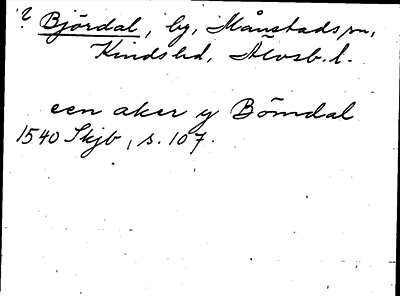 ? Björdal, by, Månstads sn,
Kinds hd, Älvsb. l.
een aker y Bömdal
1540 Skjb, s. 107.